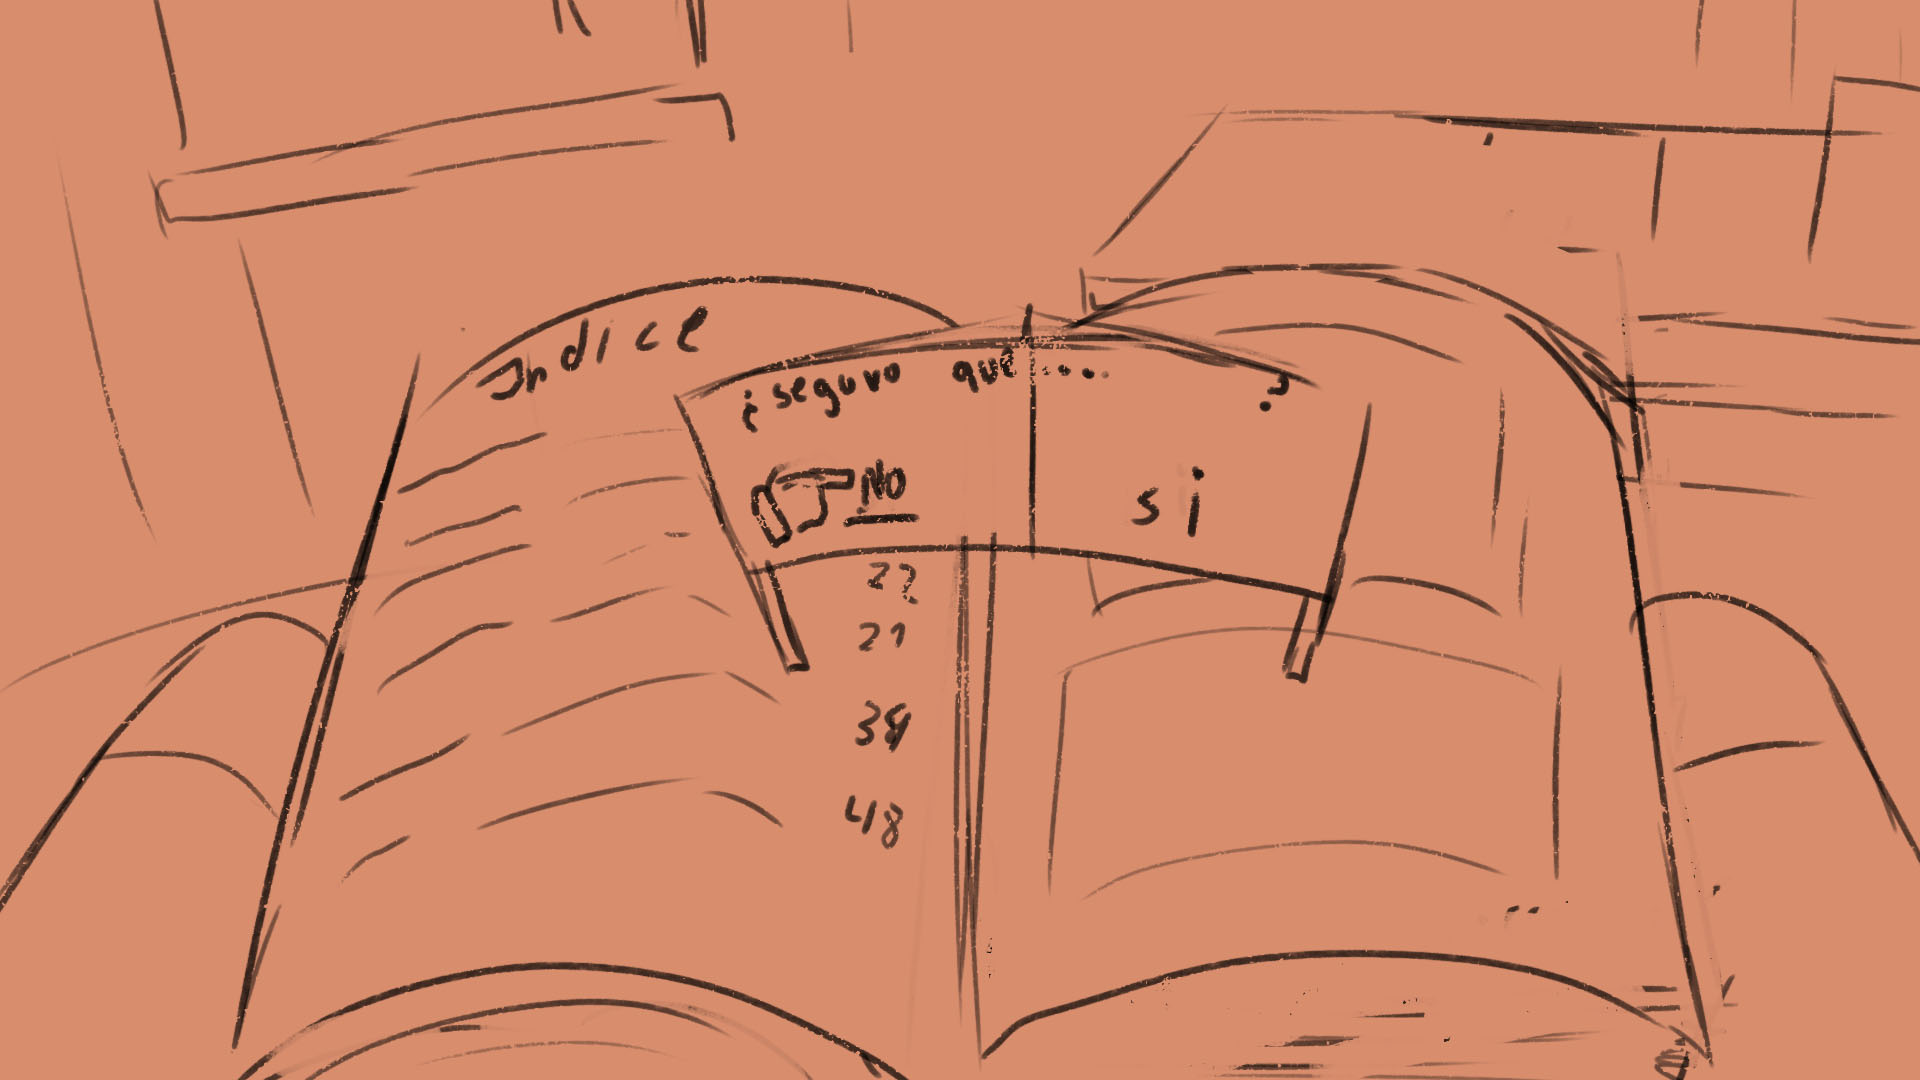 Indice
¿seguro que.... ?
NO
si
22
21
39
48